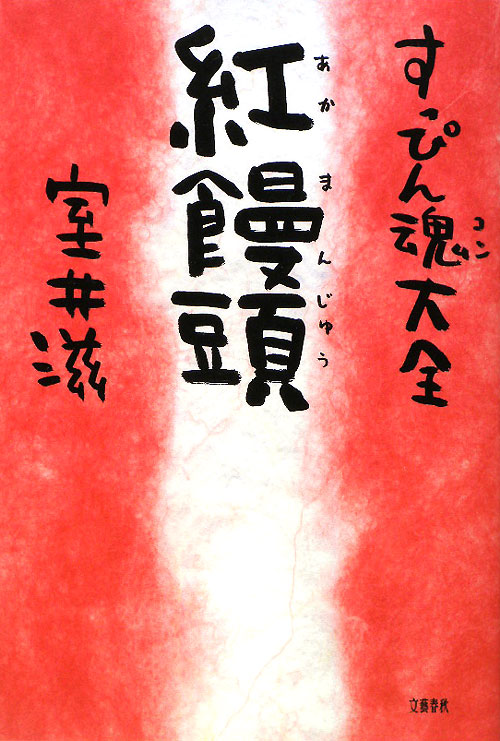 すっぴん魂大全
コン
紅饅頭
あかまんじゅう
室井滋
文藝春秋